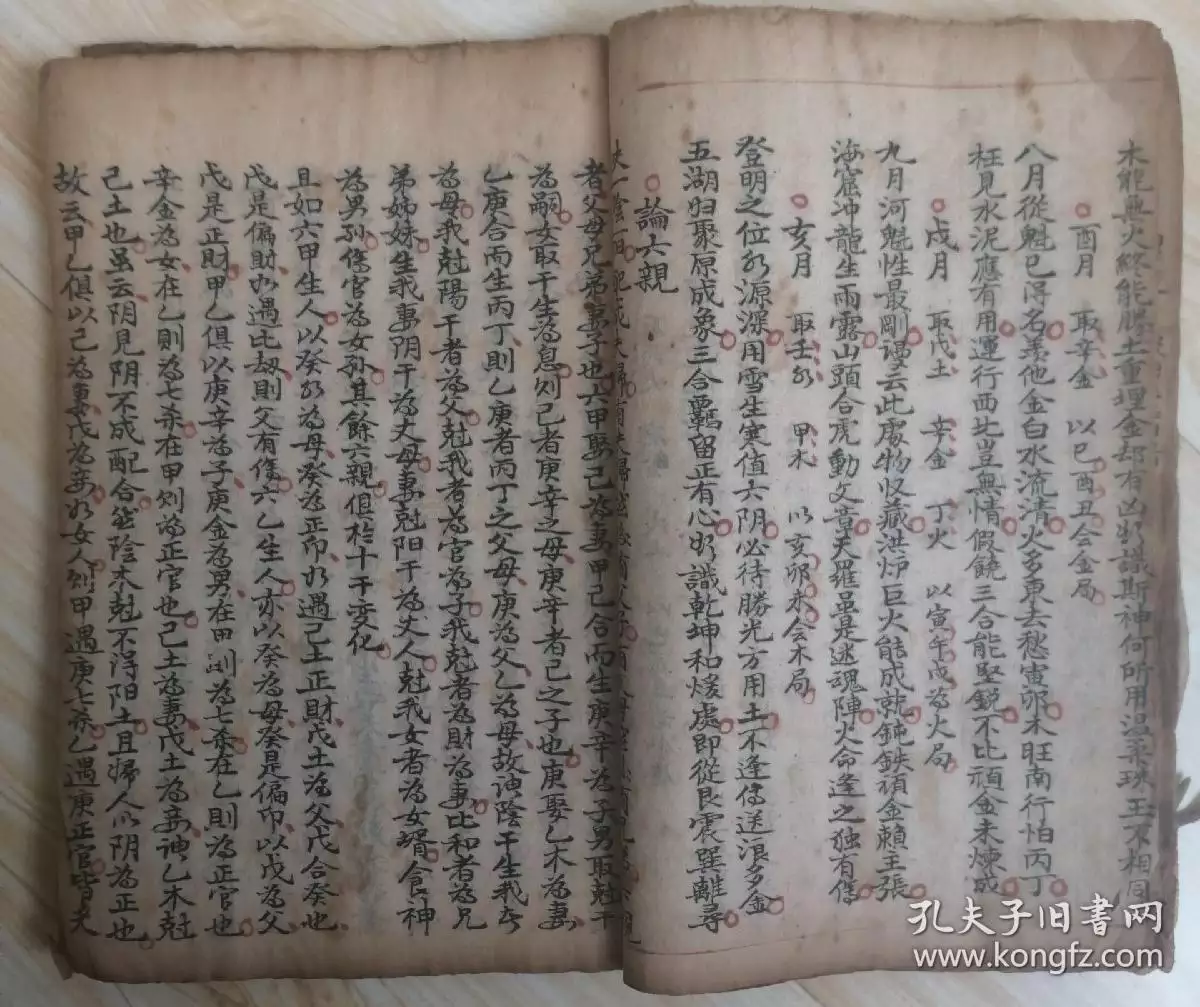 木能無火終能勝土重埋金却有凶於議斯神何所用温柔珠玉不相同
酉月 取辛金 以巳酉丑会金局
八月從魁已得名羡他金白水流清火多東去愁寅卯木旺南行怕丙丁
枉見水泥應有用運行西北豈無情假饒三合能堅銳不比頑金未煉成
戍月 取戊土 辛金 丁火 以寅午戍為火局
九月河魁性最剛謾云此處物收藏洪炉巨火能成就鈍鉄頑金賴主張
海窟冲龍生雨露山頭合虎動文章天罗虽是迷魂陣火命逢之独有傷
亥月 取壬水 甲木 以亥卯未会木局
登明之位水源深用雪生寒值六阴必待勝光方用土不逢傳送浪多金
五湖归聚原成象三合覊留正有心欲識乾坤和煖處即從艮震巽離尋
論六親
者父母兄弟妻子也六甲娶己為妻甲己合而生庚辛為子男取尅干
為嗣女取干生為息則己者庚辛之母庚辛者己之子也庚娶乙木為妻
乙庚合而生丙丁則乙庚者丙丁之父母庚為父乙為母故 陰干生我者
為母我尅陽干者為父尅我者為官為子我尅者為財為妻比和者為兄
弟姊妹生我妻阴干為丈母妻尅阳干為丈人尅我女者為女婿食神
為男孙傷官為女孙其餘六親俱於十干变化
且如六甲生人以癸水為母癸為正印如遇己土正財戊土為父戊合癸也
戊是偏財如遇比刼則父有傷六乙生人亦以癸為母癸是偏印以戊為父
戊是正財甲乙俱以庚辛為子庚金為男在甲則為七杀在乙則為正官也
辛金為女在乙則為七杀在甲則為正官也己土為妻戊土為妾 乙木尅
己土也虽云阴見阴不成配合 陰木尅不得阳土且婦人以阴為正也
故云甲乙俱以己為妻戊為妾如女人則甲遇庚七杀乙遇庚正官皆夫
孔夫子旧书网
www.kongfz.com